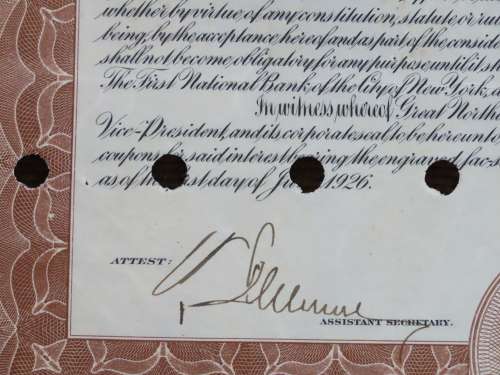 whether by virtue of any constitution, statute or ru
being by the acceptance hereof and as part of the consid
shall not become obligatory for any purpose until it sh
The First National Bank, of the City of New York, a
In witness whereof Great North
Vice-President, and its corporate seal to be hereunto
coupons for said interest bearing the engraved fac-s
as of the first day of 1926.
ATTEST:
ASSISTANT SECRETARY.